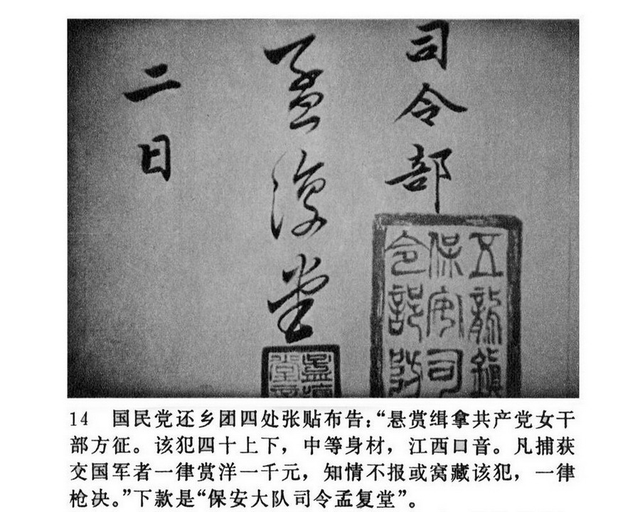 司令部
五龍鎮
保安司
令部
孟 堂
二日
14 国民党还乡团四处张贴布告：“悬赏缉拿共产党女干
部方征。该犯四十上下，中等身材，江西口音。凡捕获
交国军者一律赏洋一千元，知情不报或窝藏该犯，一律
枪决。”下款是“保安大队司令孟复堂”。